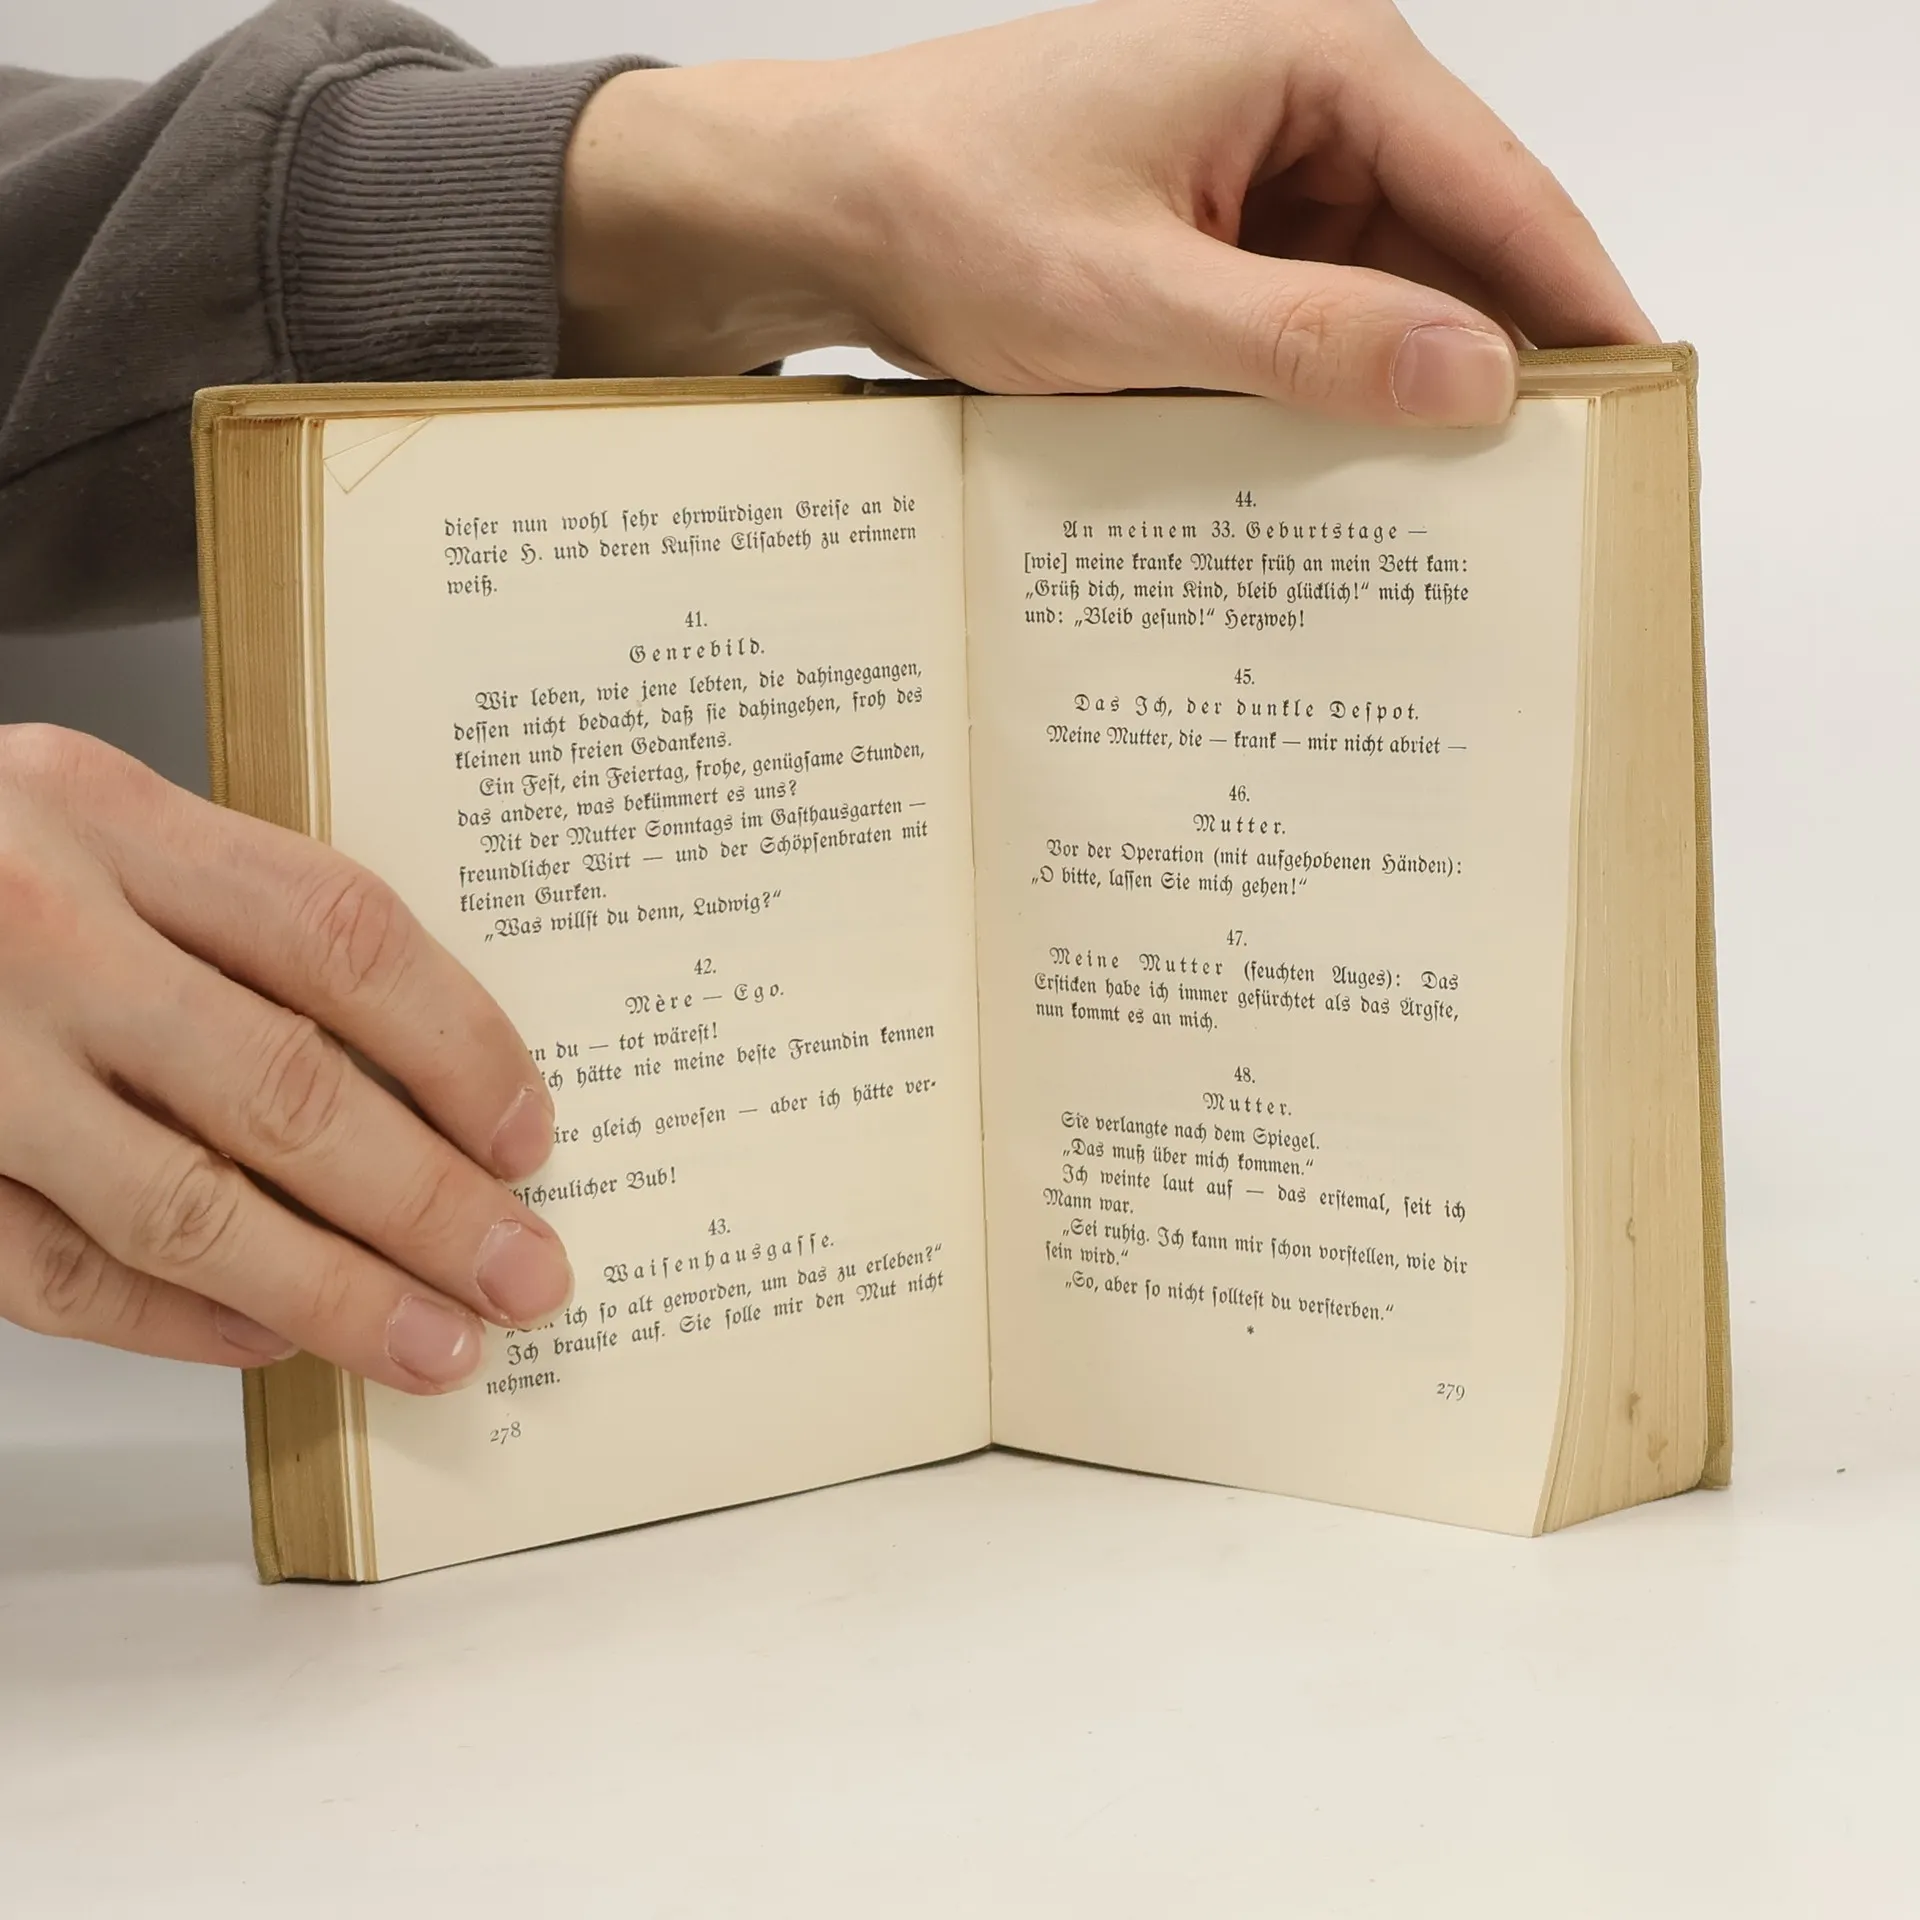 dieser nun wohl sehr ehrwürdigen Greise an die
Marie H. und deren Kusine Elisabeth zu erinnern
weiß.
41.
Genrebild.
Wir leben, wie jene lebten, die dahingegangen,
dessen nicht bedacht, daß sie dahingehen, froh des
kleinen und freien Gedankens.
Ein Fest, ein Feiertag, frohe, genügsame Stunden,
das andere, was bekümmert es uns?
Mit der Mutter Sonntags im Gasthausgarten —
freundlicher Wirt — und der Schöpsenbraten mit
kleinen Gurken.
„Was willst du denn, Ludwig?“
42.
Mère — Ego.
du — tot wärest!
ich hätte nie meine beste Freundin kennen
gleich gewesen — aber ich hätte ver-
Bub!
43.
Waisenhausgasse.
ich so alt geworden, um das zu erleben?“
Ich brauste auf. Sie solle mir den Mut nicht
nehmen.
278
44.
An meinem 33. Geburtstage —
[wie] meine kranke Mutter früh an mein Bett kam:
„Grüß dich, mein Kind, bleib glücklich!“ mich küßte
und: „Bleib gesund!“ Herzweh!
45.
Das Ich, der dunkle Despot.
Meine Mutter, die — krank — mir nicht abriet —
46.
Mutter.
Vor der Operation (mit aufgehobenen Händen):
„O bitte, lassen Sie mich gehen!“
47.
Meine Mutter (feuchten Auges): Das
Ersticken habe ich immer gefürchtet als das Ärgste,
nun kommt es an mich.
48.
Mutter.
Sie verlangte nach dem Spiegel.
„Das muß über mich kommen.“
Ich weinte laut auf — das erstemal, seit ich
Mann war.
„Sei ruhig. Ich kann mir schon vorstellen, wie dir
sein wird.“
„So, aber so nicht solltest du versterben.“
*
279